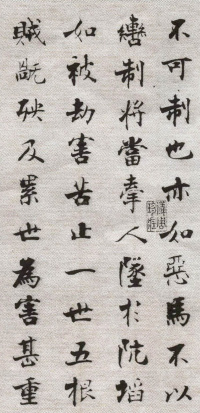 不可制也亦如惡馬不以
轡制將當牽人墜於阬埳
如被劫害苦止一世五根
賊既殃及累世為害甚重